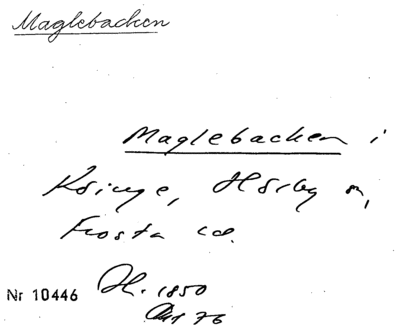 Maglebacken
Maglebacken i
Ksinge, Hörby sn,
Frosta hd.
Nr 10446 H. 1850
Akt 76